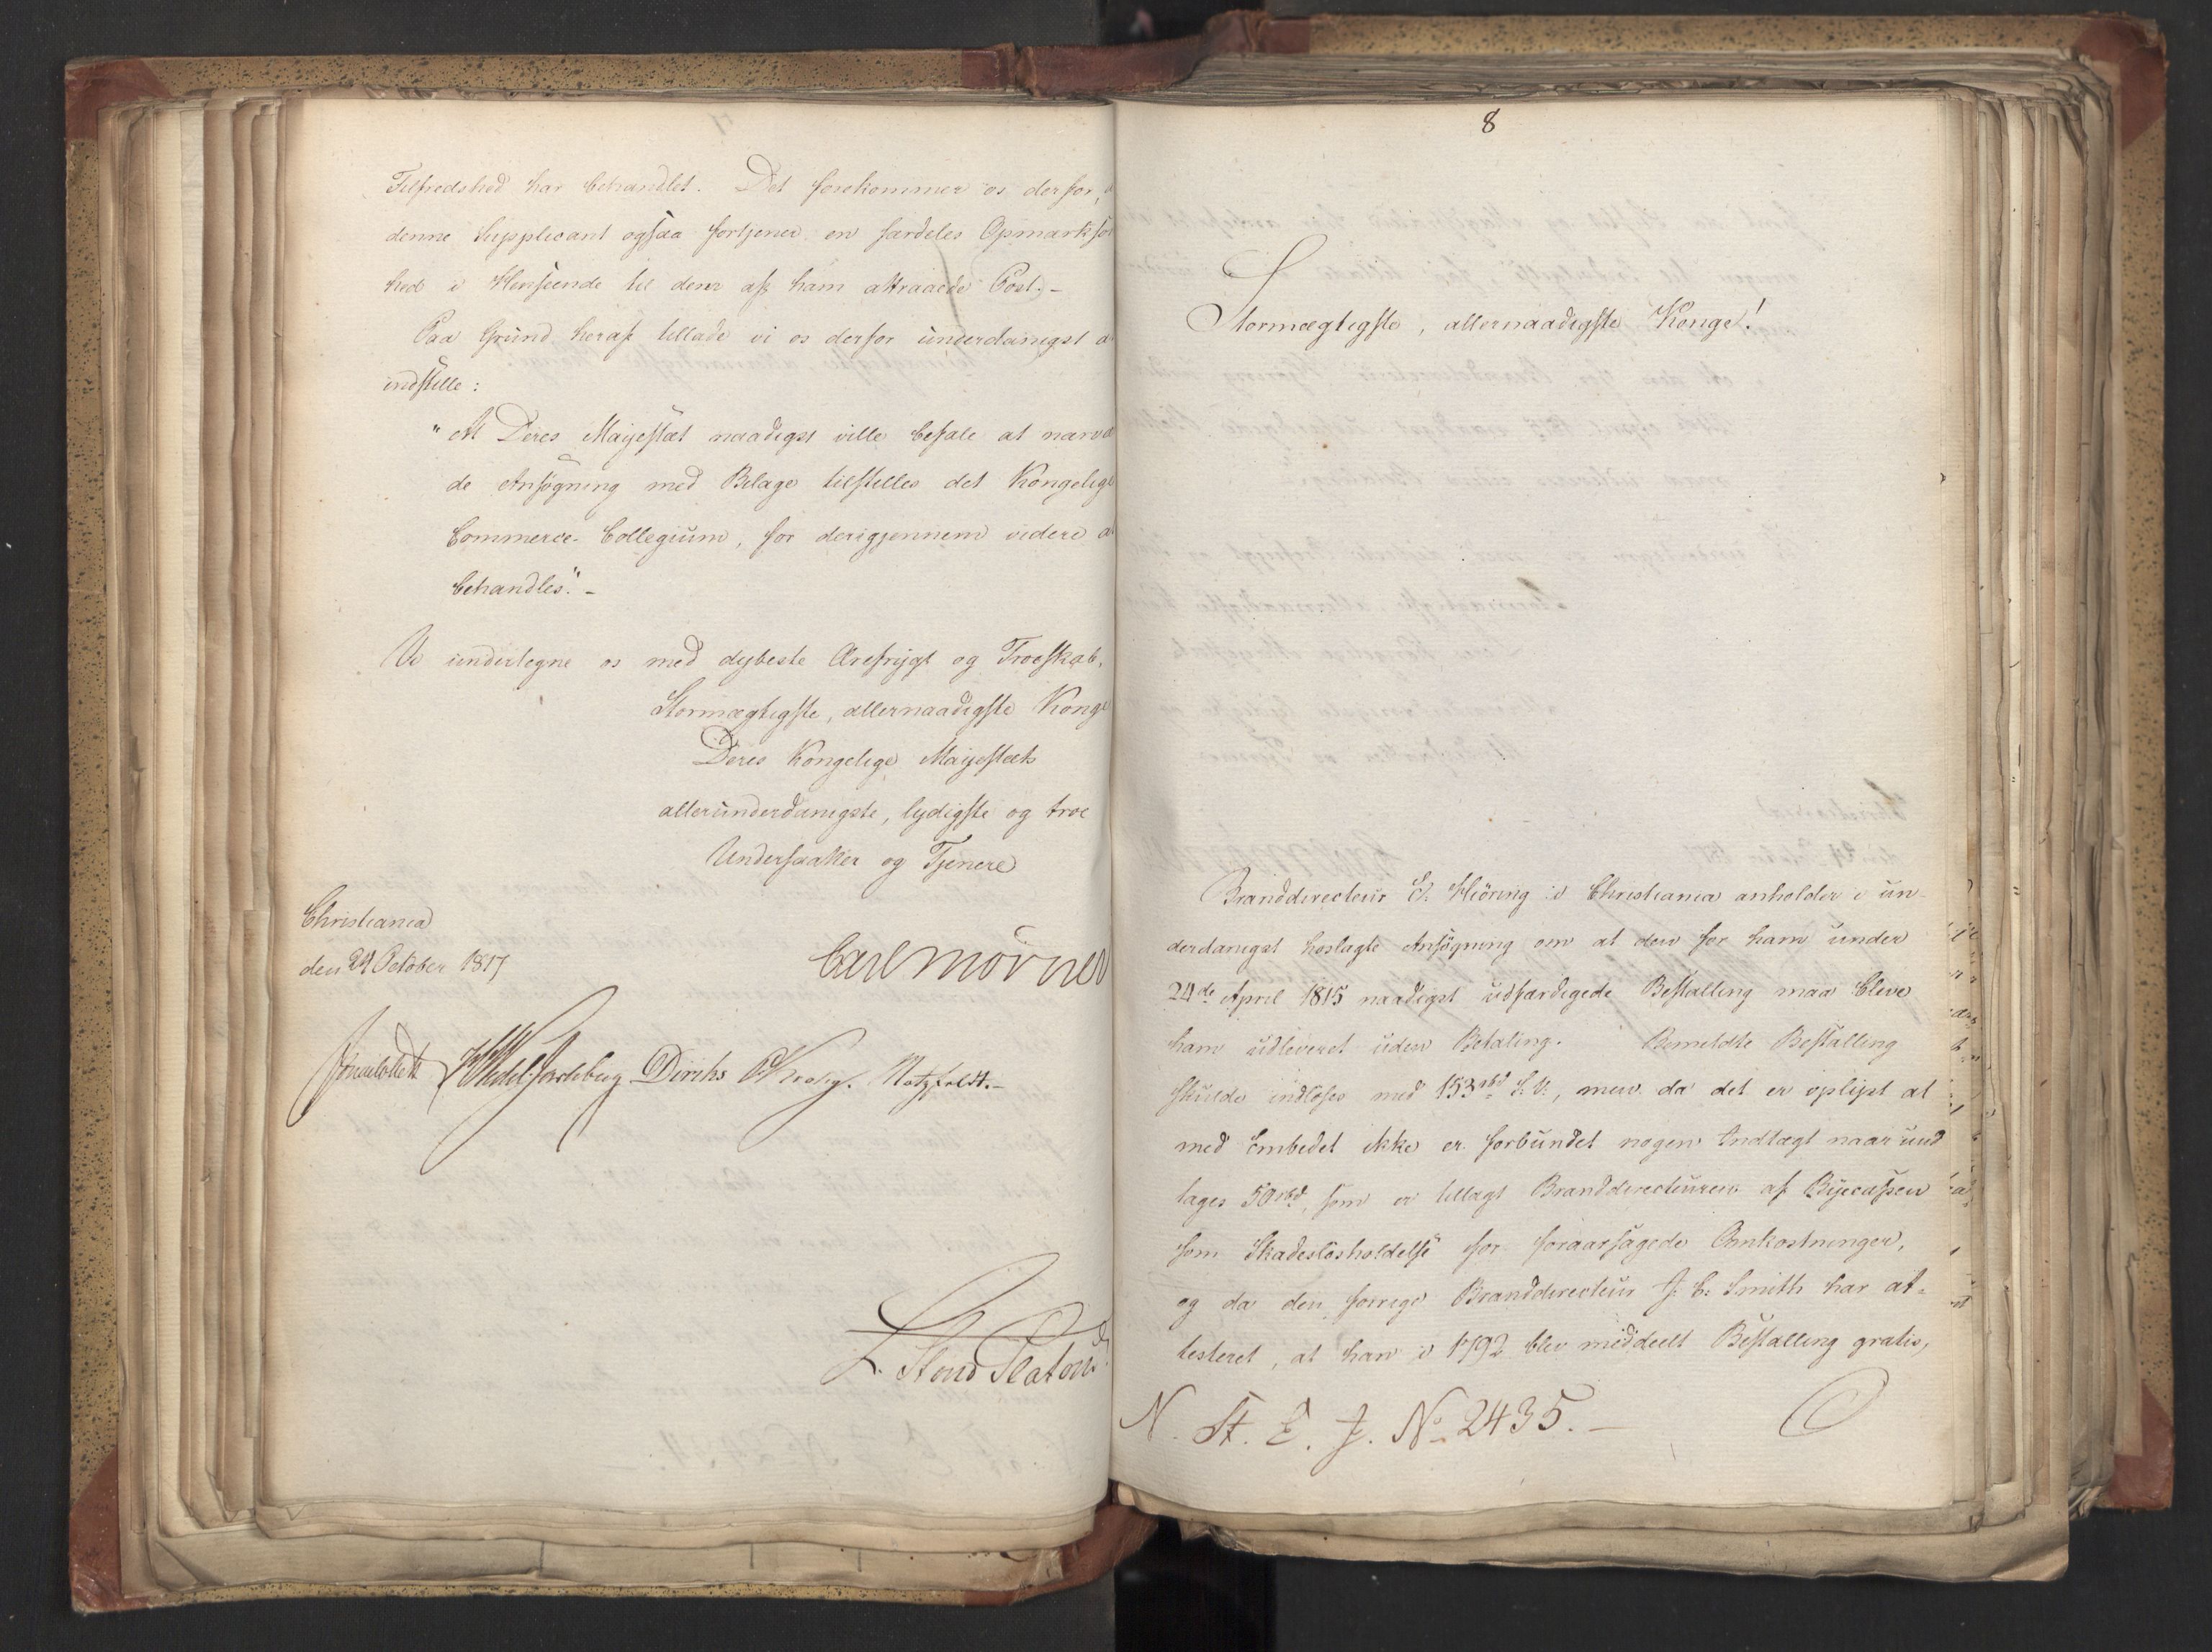 Tilfredshed har behandlet. Det forekommer os derfor,
denne Supplicant ogsaa fortjener en særdeles Opmærkso
hed i Henseende til den af ham attraaede Post. -
Paa Grund heraf tillade vi os derfor underdanigst a
indstille:
"At Deres Majestæt naadigst ville befale at nærvæ
de Ansøgning med Bilage tilstilles det Kongelige
Commerce-Collegium, for derigjennem videre a
behandles". -
Vi undertegne os med dybeste Ærefrygt og Troeskab,
Stormægtigste, allernaadigste Konge
Deres Kongelige Majestæts
allerunderdanigste, lydigste og troe
Undersaatter og Tjenere
Christiania
den 24 October 1817
Carl Mörner
Sommerhielm HWedel Jarlsberg Diriks CKrohg. Motzfeldt. -
L. Stoud Platou
8
Stormægtigste, allernaadigste Konge!
Branddirecteur E. Hiöring i Christiania anholder i un-
derdanigst hoslagte Ansøgning om at den for ham under
24de April 1815 naadigst udfærdigede Bestalling maa blive
ham udleveret uden Betaling. Bemeldte Bestalling
skulde indløses med 153 rbd S. V., men da det er oplyst at
med Embedet ikke er forbundet nogen Indtægt naar und
tages 50 rbd, som er tillagt Branddirecteuren af Byecassen
som Skadesløsholdelse for foraarsagede Omkostninger,
og da den forrige Branddirecteur J. C. Smith har at-
testeret, at han i 1792 blev meddeelt Bestalling gratis,
N. St. E. J. No 2435. -